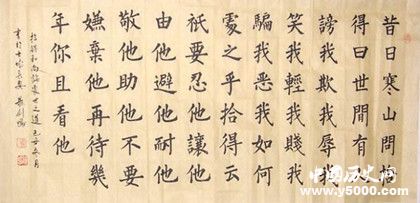 昔日寒山問拾
得曰世間有
謗我欺我辱我
笑我輕我賤我
騙我惡我如何
處之乎拾得云
衹要忍他讓他
由他避他耐他
敬他助他不要
嫌棄他再待幾
年你且看他
拾得和尚論處世之道
中国历史网
www.y5000.com